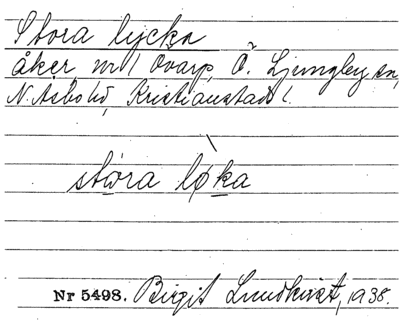 Stora lycka
åker nr 1 Ovarp, Ö. Ljungby sn,
N. Åsbo hd, Kristianstads l.
stóra lø̀ka
Nr 5498. Birgit Lundkvist, 1938.